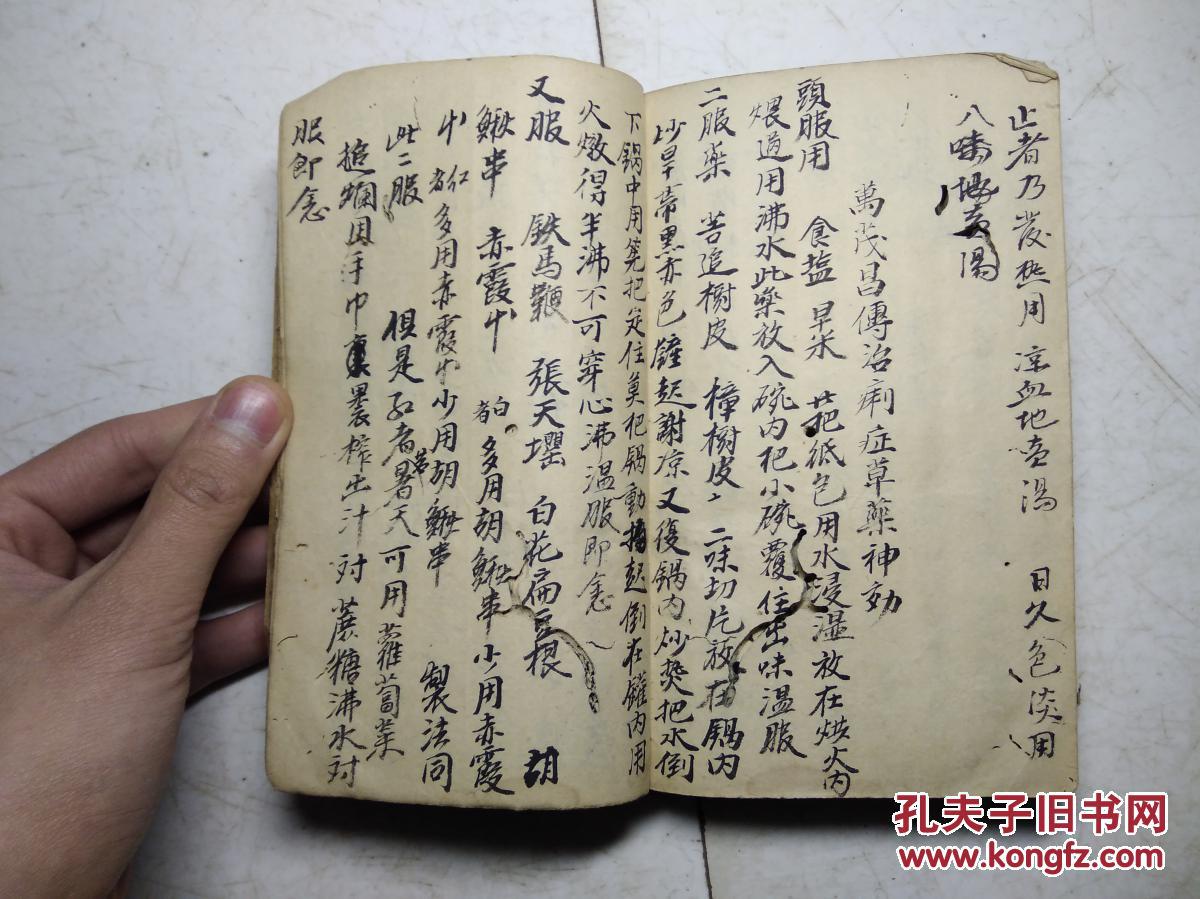 止者乃發热用 凉血地黄湯 日久色淡用
八味地黄湯
萬茂昌傳治痢症草藥神効
頭服用 食塩 早米 廿把纸包用水浸湿放在烘火内
煨過用沸水此藥放入碗内把小碗覆住出味温服
二服藥 苦追樹皮 樟樹皮 二味切片放在鍋内
炒旱帶黑赤色 鏟起謝凉又復鍋内炒𤏸把水倒
下鍋中用筅把定住莫把鍋動 起倒在罐内用
火燉得半沸不可穿心沸温服即愈
又服 鉄馬鞭 張天壜 白花扁豆根 胡
鰍串 赤霞巾 白者多用胡鰍串少用赤霞
巾 红者多用赤霞巾少用胡鰍串 製法同
此二服 俱是 红者暑天可用蘿蔔菜
搥爛用手巾裹 榨出汁 对蔗糖沸水对
服即愈
孔夫子旧书网
www.kongfz.com